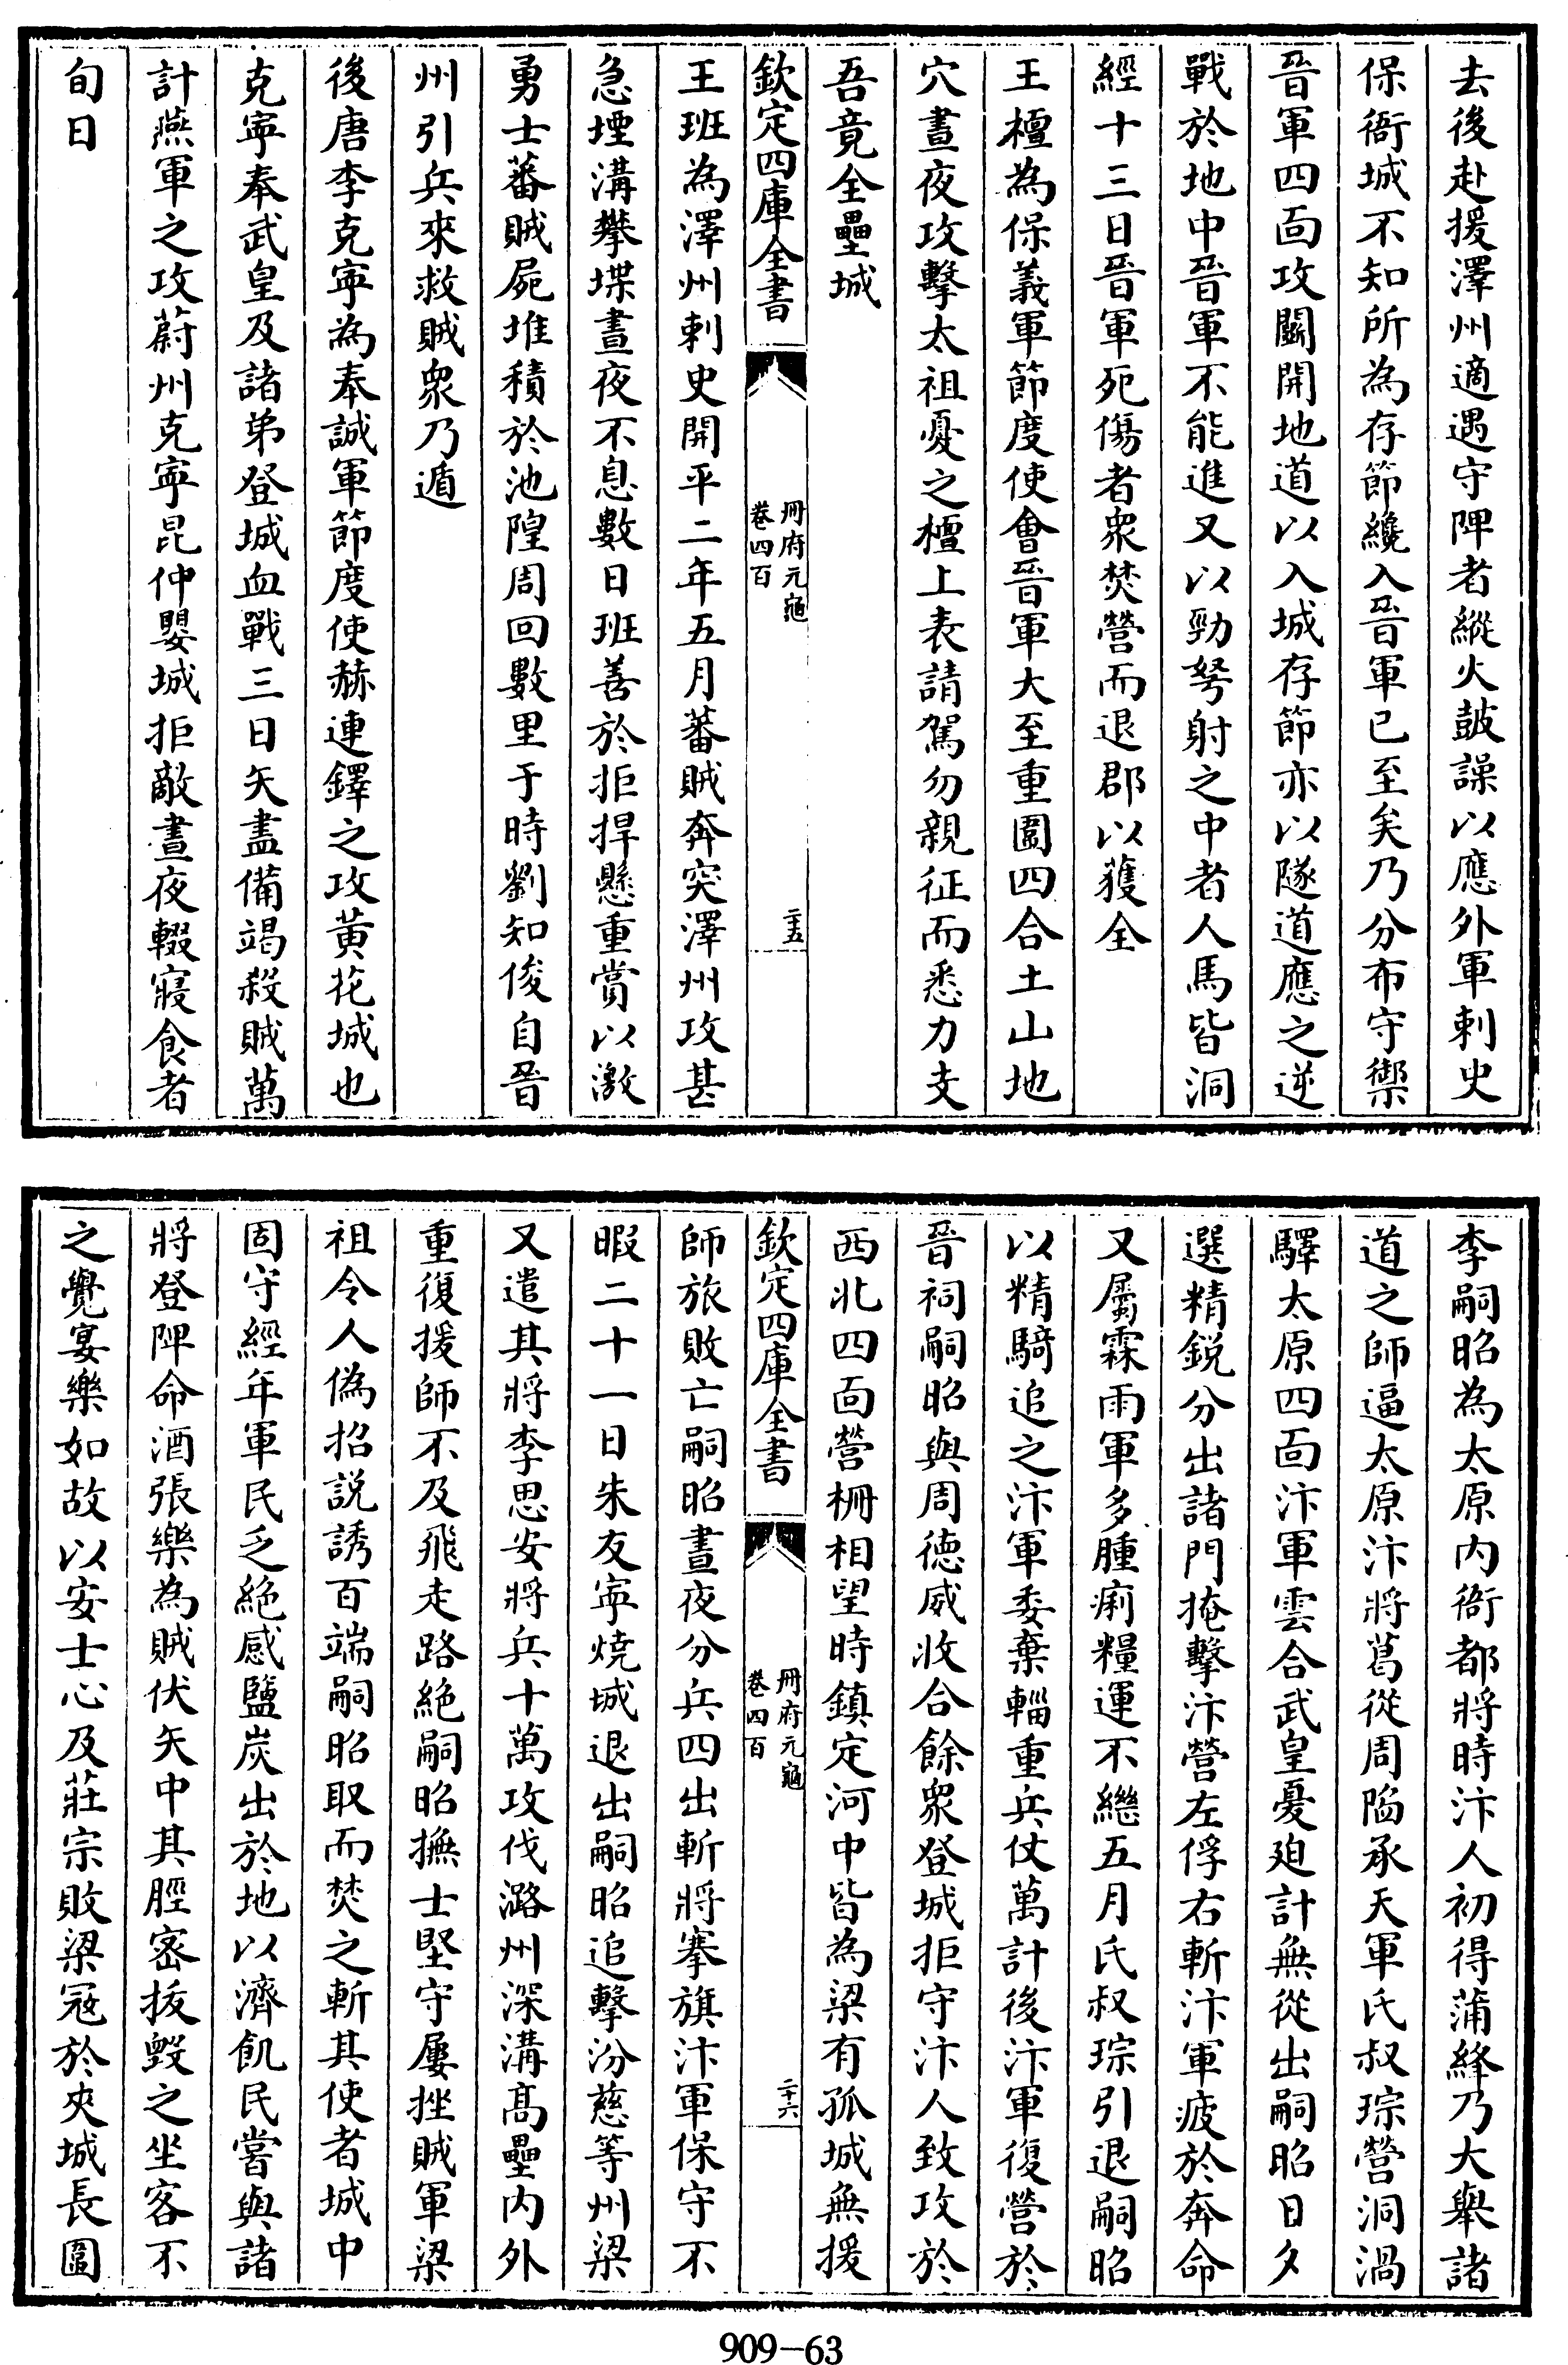 去後赴援澤州適遇守陴者縱火鼓譟以應外軍刺史
保衙城不知所為存節纔入晉軍已至矣乃分布守禦
晉軍四面攻鬭開地道以入城存節亦以隧道應之逆
戰於地中晉軍不能進又以勁弩射之中者人馬皆洞
經十三日晉軍死傷者衆焚營而退郡以獲全
王檀為保義軍節度使會晉軍大至重圍四合土山地
穴晝夜攻擊太祖憂之檀上表請駕勿親征而悉力支
吾竟全壘城
欽定四庫全書
冊府元龜
卷四百
二十五
王班為澤州刺史開平二年五月蕃賊奔突澤州攻甚
急堙溝攀堞晝夜不息數日班善於拒捍懸重賞以激
勇士蕃賊屍堆積於池隍周回數里于時劉知俊自晉
州引兵來救賊衆乃遁
後唐李克寧為奉誠軍節度使赫連鐸之攻黄花城也
克寧奉武皇及諸弟登城血戰三日矢盡備竭殺賊萬
計燕軍之攻蔚州克寧昆仲嬰城拒敵晝夜輟寢食者
旬日
李嗣昭為太原内衙都將時汴人初得蒲絳乃大舉諸
道之師逼太原汴將葛從周陷承天軍氏叔琮營洞渦
驛太原四面汴軍雲合武皇憂廹計無從出嗣昭日夕
選精鋭分出諸門掩擊汴營左俘右斬汴軍疲於奔命
又屬霖雨軍多腫痢糧運不繼五月氏叔琮引退嗣昭
以精騎追之汴軍委棄輜重兵仗萬計後汴軍復營於
晉祠嗣昭與周德威收合餘衆登城拒守汴人致攻於
西北四面營柵相望時鎮定河中皆為梁有孤城無援
欽定四庫全書
冊府元龜
卷四百
二十六
師旅敗亡嗣昭晝夜分兵四出斬將搴旗汴軍保守不
暇二十一日朱友寧燒城退出嗣昭追擊汾慈等州梁
又遣其將李思安將兵十萬攻伐潞州深溝髙壘内外
重復援師不及飛走路絶嗣昭撫士堅守屢挫賊軍梁
祖令人偽招説誘百端嗣昭取而焚之斬其使者城中
固守經年軍民乏絶感鹽炭出於地以濟飢民嘗與諸
將登陴命酒張樂為賊伏矢中其脛密拔毁之坐客不
之覺宴樂如故以安士心及莊宗敗梁冦於夾城長圍
909-63